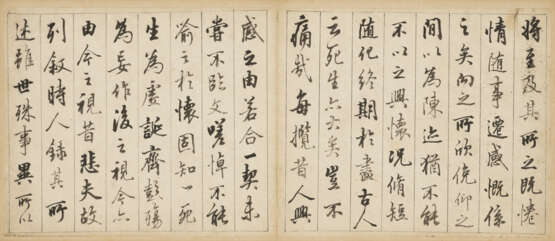 將至及其所之既惓
情随事遷感慨係
之矣向之所欣俛仰之
間以為陳迹猶不能
不以之興懷況脩短
随化終期於盡古人
云死生亦大矣豈不
痛哉每攬昔人興
感之由若合一契未
嘗不臨文嗟悼不能
喻之於懷固知一死
生為虛誕齊彭殤
為妄作後之視今亦
由今之視昔悲夫故
列敘時人錄其所
述雖世殊事異所以